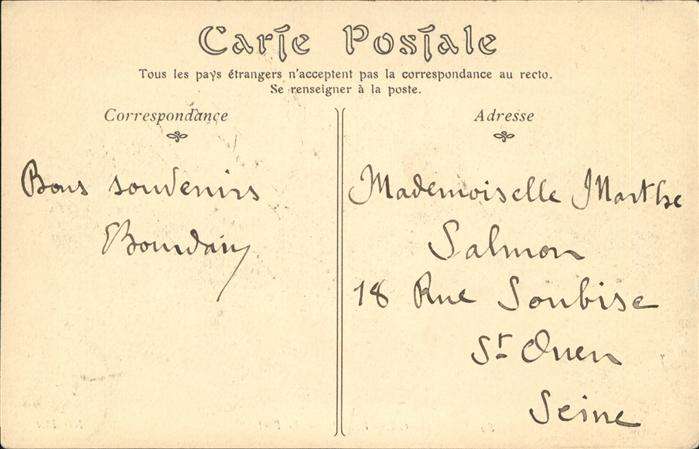 Carte Postale
Tous les pays étrangers n'acceptent pas la correspondance au recto.
Se renseigner à la poste.
Correspondance
Bons souvenirs
Adresse
Mademoiselle Marthe
Salmon
18 Rue Soubise
St Ouen
Seine